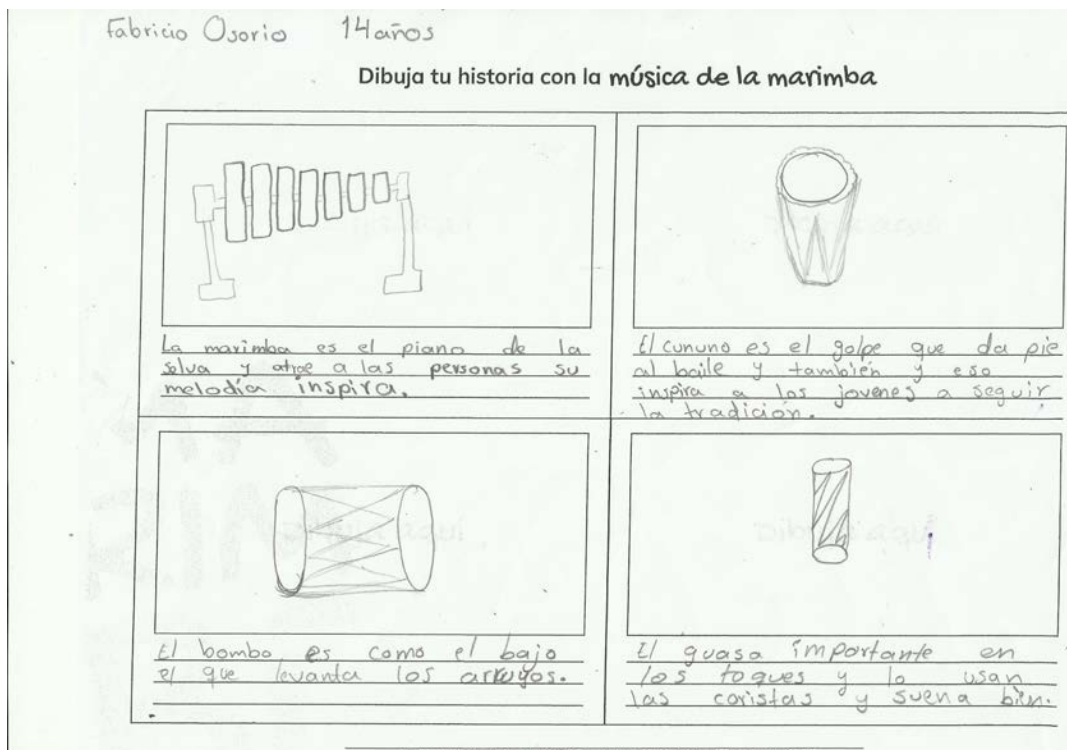 Fabricio Osorio 14 años
Dibuja tu historia con la música de la marimba
La marimba es el piano de la
selva y atrae a las personas su
melodía inspira.
El cununo es el golpe que da pie
al baile y también y eso
inspira a los jovenes a seguir
la tradición.
El bombo es como el bajo
el que levanta los arruyos.
El guasa importante en
los toques y lo usan
las coristas y suena bien.